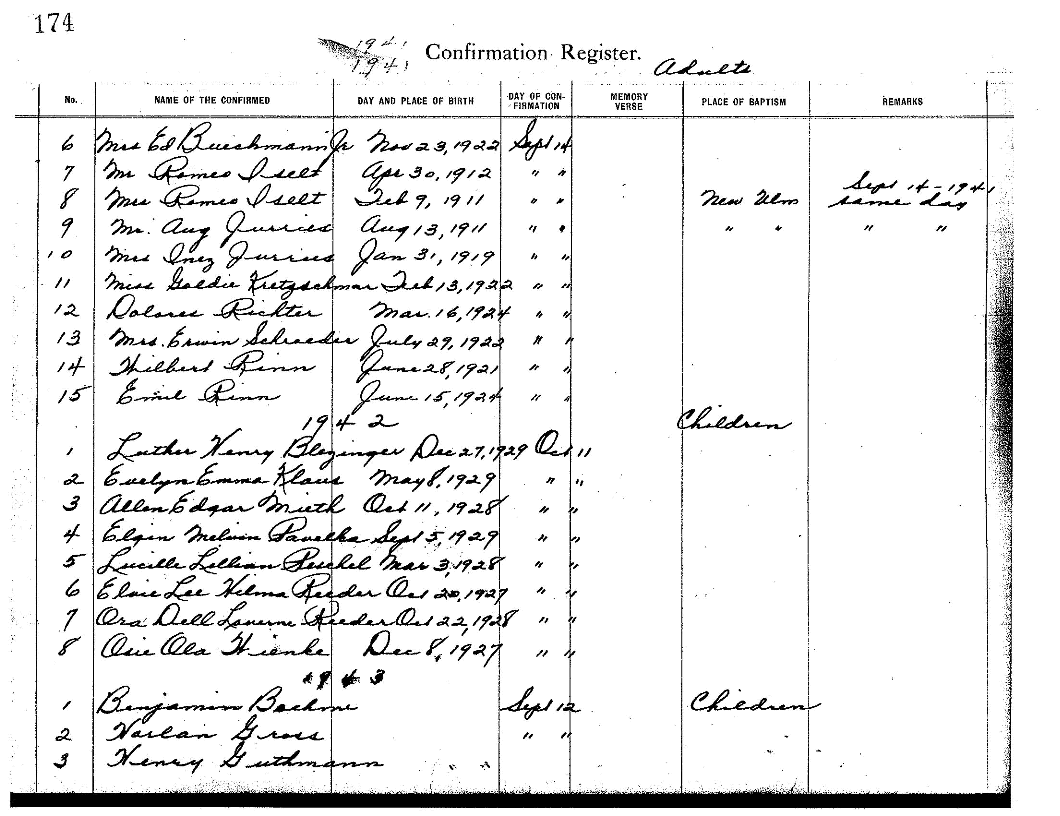 174
1941
1941
Confirmation Register.
Adults
No. NAME OF THE CONFIRMED DAY AND PLACE OF BIRTH DAY OF CON-FIRMATION MEMORY VERSE PLACE OF BAPTISM REMARKS
6 Mrs Ed Bueschmann Jr Nov 23, 1922 Sept 14
7 Mr Romeo Iselt Apr 30, 1912 " " Sept 14-1941
8 Mrs Romeo Iselt Feb 9, 1911 " " New Ulm same day
9 Mr. Aug Jurries Aug 13, 1911 " " " " " "
10 Mrs Inez Jurries Jan 31, 1919 " "
11 Miss Goldie Kretzschmar Feb 13, 1922 " "
12 Dolores Richter Mar. 16, 1924 " "
13 Mrs. Erwin Schroeder July 29, 1922 " "
14 Hilbert Rinn June 28, 1921 " "
15 Emil Rinn June 15, 1924 " "
1942 Children
1 Luther Henry Blezinger Dec 27, 1929 Oct 11
2 Evelyn Emma Klaus May 8, 1929 " "
3 Allen Edgar Mieth Oct 11, 1928 " "
4 Elgin Melvin Pavelka Sept 5, 1929 " "
5 Lucille Lillian Peschel Mar 3, 1928 " "
6 Elsie Lee Hilma Reeder Oct 20, 1927 " "
7 Ora Dell Laverne Reeder Oct 22, 1928 " "
8 Osie Ola Hienke Dec 8, 1927 " "
1943
1 Benjamin Boehme Sept 12 Children
2 Harlan Gross " "
3 Henry Guthmann